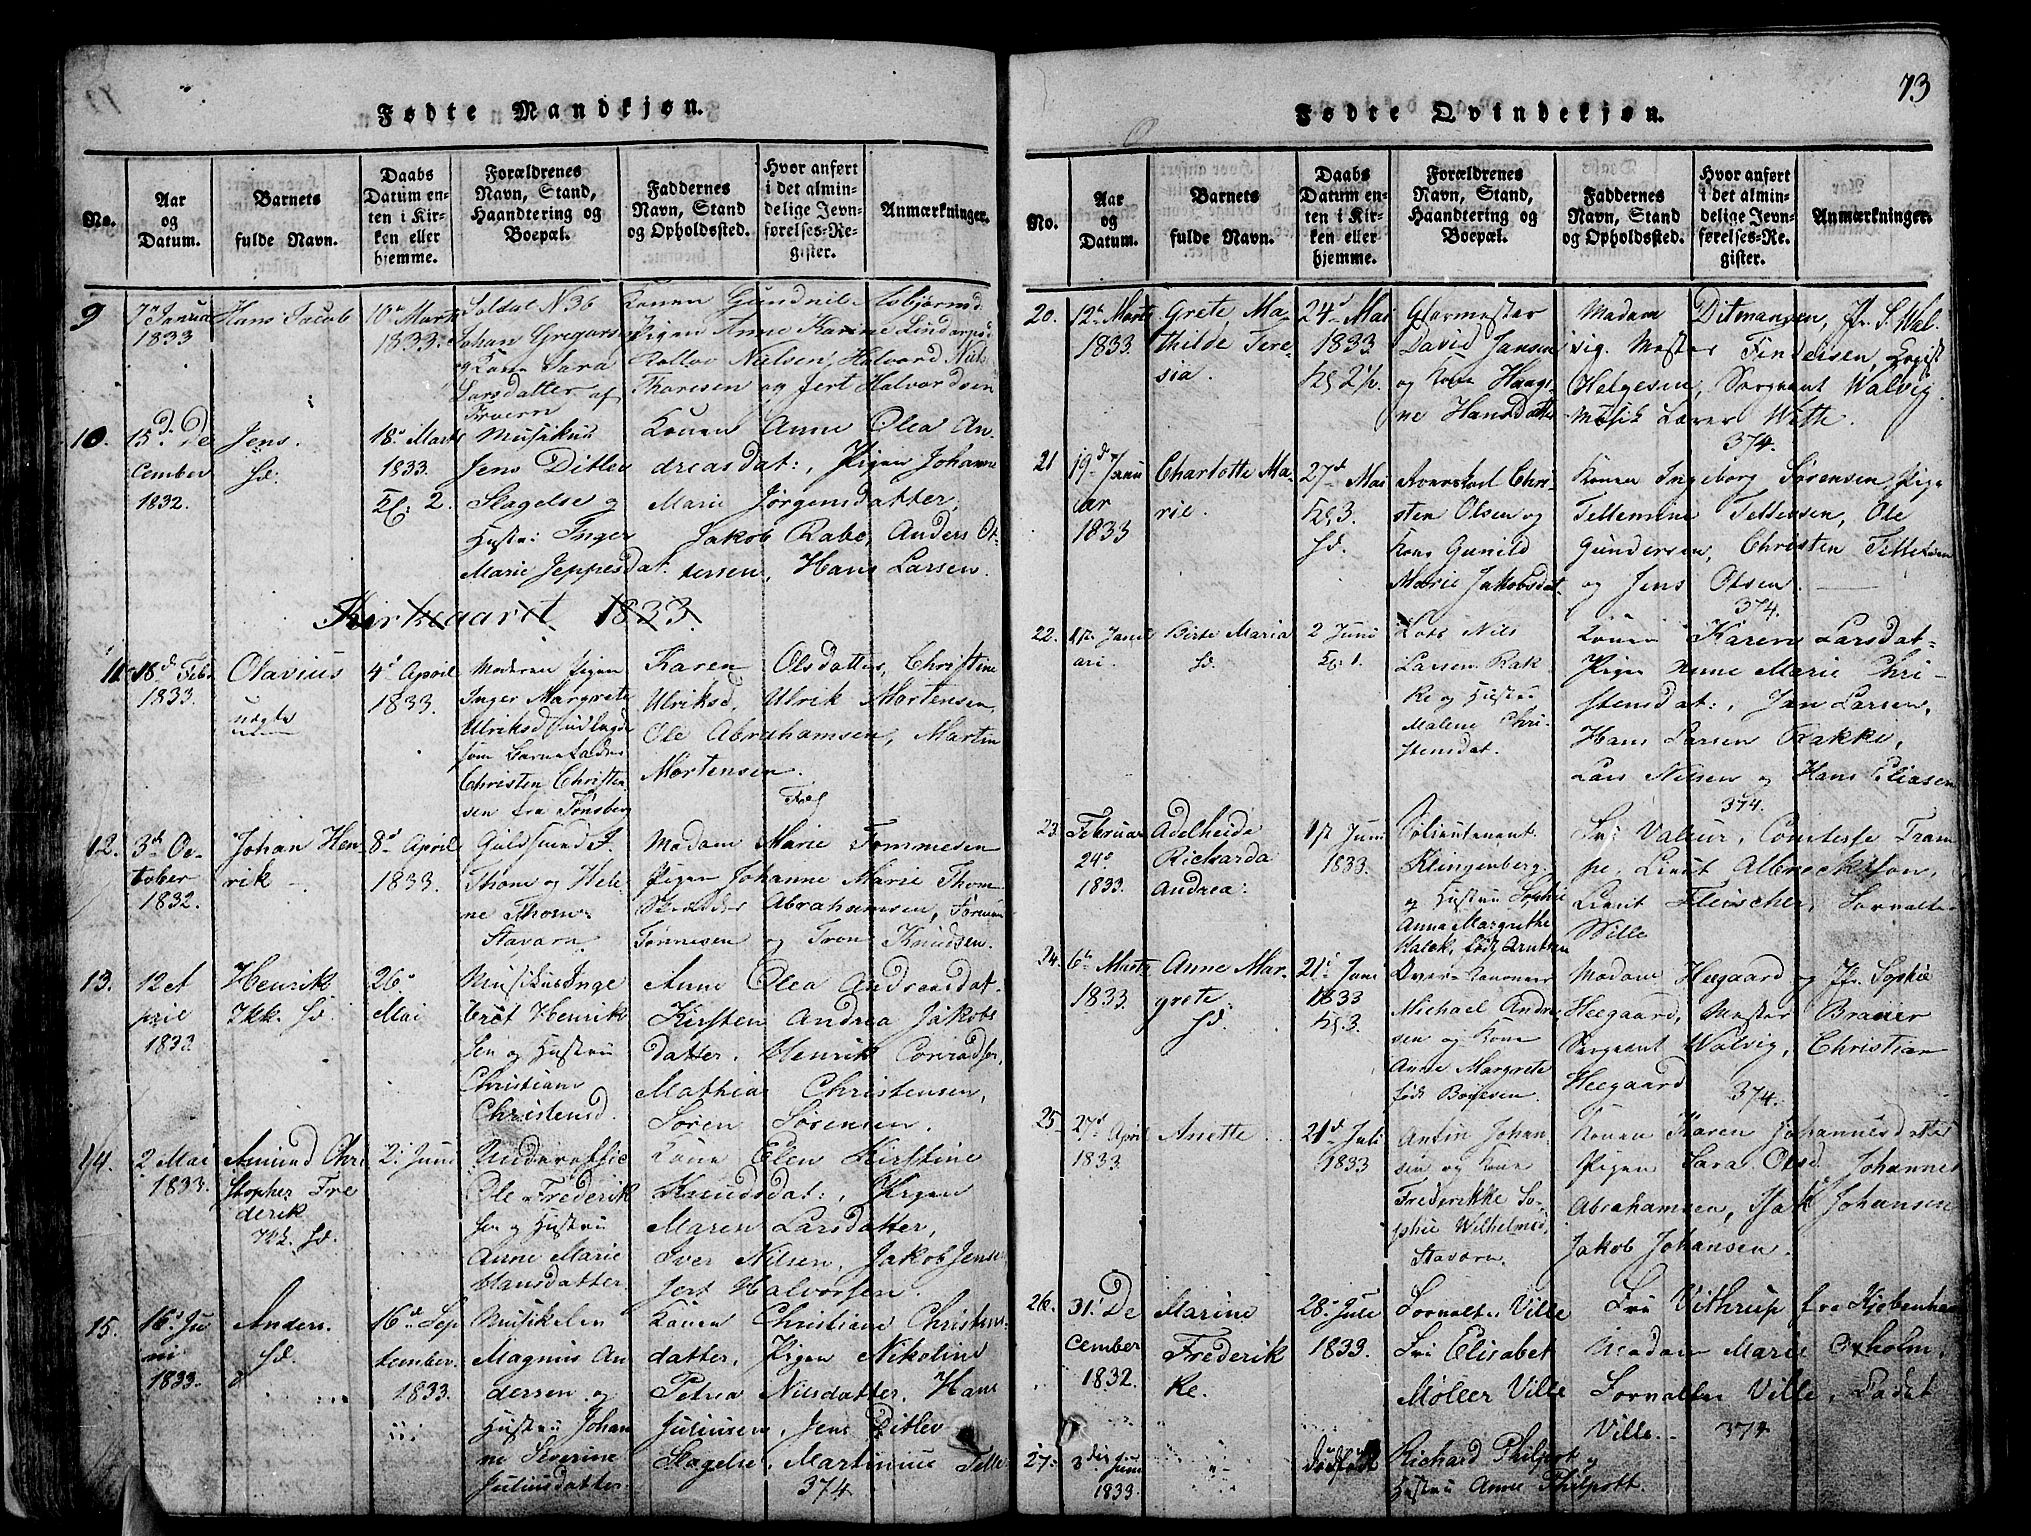 Fødte Mandkjøn.
No.
Aar
og
Datum.
Barnets
fulde Navn.
Daabs
Datum en-
ten i Kir-
ken eller
hjemme.
Forældrenes
Navn, Stand,
Haandtering og
Boepæl.
Faddernes
Navn, Stand
og Opholdssted.
Hvor anført
i det almin-
delige Jevn-
førelses-Re-
gister.
Anmærkninger.
9
7de Janua
1833
Hans Jacob
10de Marts
1833.
Soldat N 36
Johan Gregorsen
og Kone Sara
Larsdatter af
Konen Gundnil
Pigen Anne Karine
Nielsen, Halvord
Thoresen og Gert Halvordsen
10.
15d. De
cember
1832.
Jens.
Hd.
18d Marts
1833.
Kl: 2.
Musikus
Jens Ditlev
Slagelse og
Hustru Inger
Marie Jeppesdat.
Konen Anne Olea An-
dreasdat:, Pigen Johanne
Marie Jørgensdatter,
Jakob Rabe, Anders Ot-
tersen, Hans Larsen.
Kirkeaaret 1833.
11.
18d Feb.
1833.
Olavius
uægte
4d April
1833.
Moderen Pigen
Inger Margrete
Ulriksd
som Barnefader
Christen Christen
sen fra Tønsberg
Karen Olsdatter, Christine
Ulriksd, Ulrik Mortensen,
Ole Abrahamsen, Martin
Mortensen.
12.
3d Oc-
tober
1832.
Johan Hen-
rik
8d April
1833.
Guldsmed J.
Thom og Hele-
ne Thom
Staværn.
Madam Marie Tommesen
Pigen Johanne Marie Thom
Abrahamsen,
Tønnesen og Tron Knudsen.
13.
12et
pril
1833.
Henrik
Ikk. Hd.
26d
Mai
Musikus Inge
bret Henrik
sen og Hustru
Christiane
Christensd.
Anne Olea Andreasdat.
Kirsten Andrea Jakobs
datter, Henrik Conradsen,
Mathias Christensen,
Søren Sørensen.
14.
2 Mai
1833.
Amund Chri
stopher Fre
derik
Ikk. Hd.
2d Juni
Underofficer
Ole Frederik
sen og Hustru
Anne Marie
Hansdatter
Kone Elen Kirstine
Knudsdat:, Pigen
Maren Larsdatter,
Iver Nilsen, Jakob Jense
Gert Halvorsen.
15.
16d Ju
ni
1833.
Anders.
Hd.
16d Sep
tember.
1833.
Musikeren
Magnus An
dersen og
Hustru Johan
ne Severine
Juliusdatter
Konen Christiane Christens-
datter, Pigen Nikoline
Petrea Nilsdatter, Hans
Juliusen, Jens Ditlev
Slagelse, Martinius Telle
374
73
Fødte Qvindekjøn.
No.
Aar
og
Datum.
Barnets
fulde Navn.
Daabs
Datum en-
ten i Kir-
ken eller
hjemme.
Forældrenes
Navn, Stand,
Haandtering og
Boepæl.
Faddernes
Navn, Stand
og Opholdssted.
Hvor anført
i det almin-
delige Jevn-
førelses-Re-
gister.
Anmærkninger.
20.
12d Marts
1833.
Grete Ma-
thilde Tere-
sia.
24d Mai
1833.
Glarmester
David Jansen
og Kone Haag-
ne Hansdatter
Madam Ditmansen, Jfr S. Wal-
vig. Mester Findersen
Helgesen, Sergeant Walvig.
Musik Lærer Wette.
374.
21
19d Janu
ar
1833
Charlotte Ma-
rie.
27d Mai
Kl 3.
Hd.
Chri-
sten Olsen og
Kone Gunild
Marie Jakobsdat.
Konen Ingeborg Sørensen, Pige
Tellemine Tellefsen, Ole
Gundersen, Christen Tellefsen
og Jens Olsen.
374.
22.
Janu
ari.
Birte Maria
Hd.
2 Juni
Kl: 1.
Lots Nils
Larsen Rak
ke og Hustru
Malene Chri-
stensdat.
Konen Karen Larsdat-
Pigen Anne Marie Chri-
stensdat:, Jan Larsen,
Hans Larsen Rakke,
Lars Nilsen og Hans Eliasen
374.
23.
Februar
24d
1833.
Adelheide
Rickarda
Andrea:
Juni
1833.
Klingenberg
og Hustru Sophie
Anna Margrethe
født Arntsen
Fru Valeur, Comtesse Tram
pe, Lieut Albrecktson,
Lieut Fleischer, Forvalter
Wille
24.
6d Marts
1833.
Anne Mar-
grete.
Hd.
21d Juni
1833
Kl. 3.
Over Canoneer
Michael Andre
sen og Kone
Anne Margrete
født Boyesen.
Madam Heegaard og Jfr. Sophie
Heegaard, Mester Brauer
Sergeant Walvig, Christian
Heegaard
374.
25.
27d April
1833.
Anette.
21d Juli
1833
Antin Johan
sen og Kone
Frederikke So-
phie Wilhelmsd,
Staværn.
Konen Karen Johannesdatter
Pigen Sara Olsd, Johannes
Abrahamsen, Isak Johansen
Jakob Johansen.
26.
31d De
cember
1832.
Marine
Frederik
ke.
28d Juli
1833.
Forvalt. Ville
Fru Elisabet
Møller Ville
Fru Vithrup fra Kjøbenhavn
Madam Marie Oxholm,
Forvalter Ville, Cadet
Ville.
374
27.
3die Juni
1833.
dødfødt
Richard Philpot og
Hustru Anne Philpott.